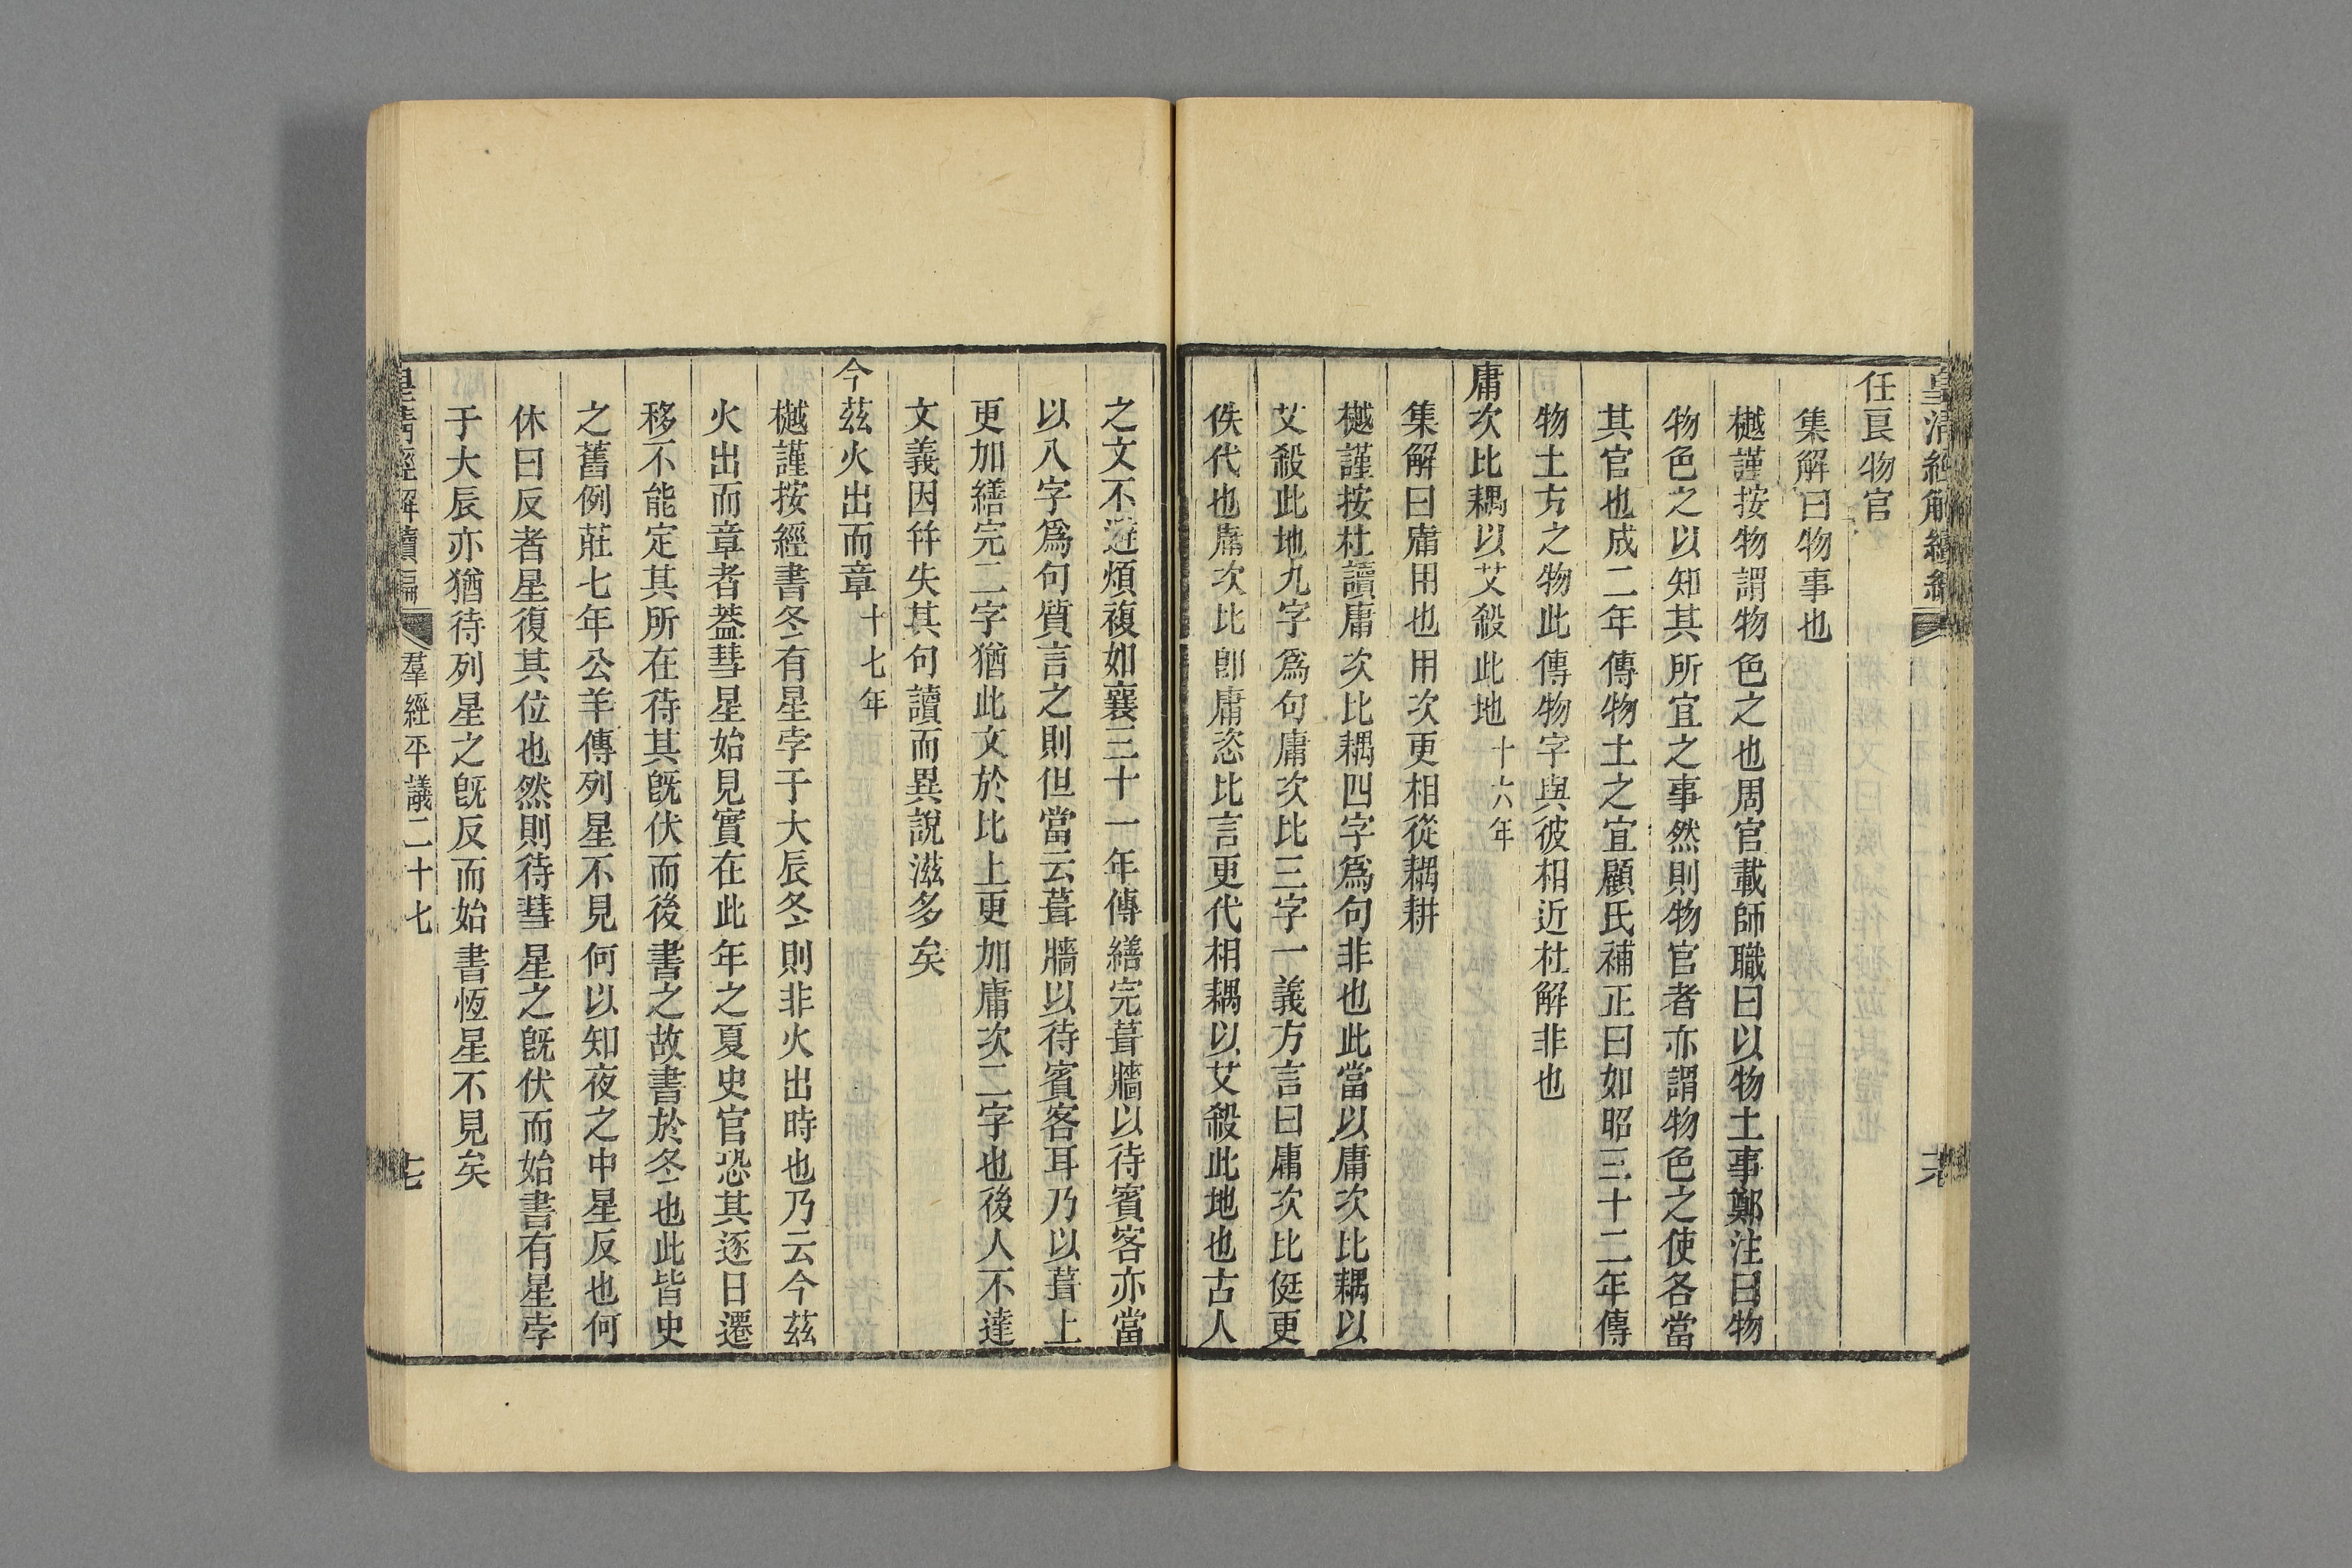 皇清經解續編
任良物官
集解曰物事也
樾謹按物謂物色之也周官載師職曰以物土事鄭注曰物
物色之以知其所宜之事然則物官者亦謂物色之使各當
其官也成二年傳物土之宜顧氏補正曰如昭三十二年傳
物土方之物此傳物字與彼相近杜解非也
庸次比耦以艾殺此地十六年
集解曰庸用也用次更相從耦耕
樾謹按杜讀庸次比耦四字爲句非也此當以庸次比耦以
艾殺此地九字爲句庸次比三字一義方言曰庸次比侹更
佚代也庸次比卽庸恣比言更代相耦以艾殺此地也古人
之文不避煩複如襄三十一年傳繕完葺牆以待賓客亦當
以八字爲句質言之則但當云葺牆以待賓客耳乃以葺上
更加繕完二字猶此文於比上更加庸次二字也後人不達
文義因幷失其句讀而異說滋多矣
今茲火出而章十七年
樾謹按經書冬有星孛于大辰冬則非火出時也乃云今茲
火出而章者蓋彗星始見實在此年之夏史官恐其逐日遷
移不能定其所在待其旣伏而後書之故書於冬也此皆史
之舊例莊七年公羊傳列星不見何以知夜之中星反也何
休曰反者星復其位也然則待彗星之旣伏而始書有星孛
于大辰亦猶待列星之旣反而始書恆星不見矣
皇清經解續編 羣經平議二十七 七